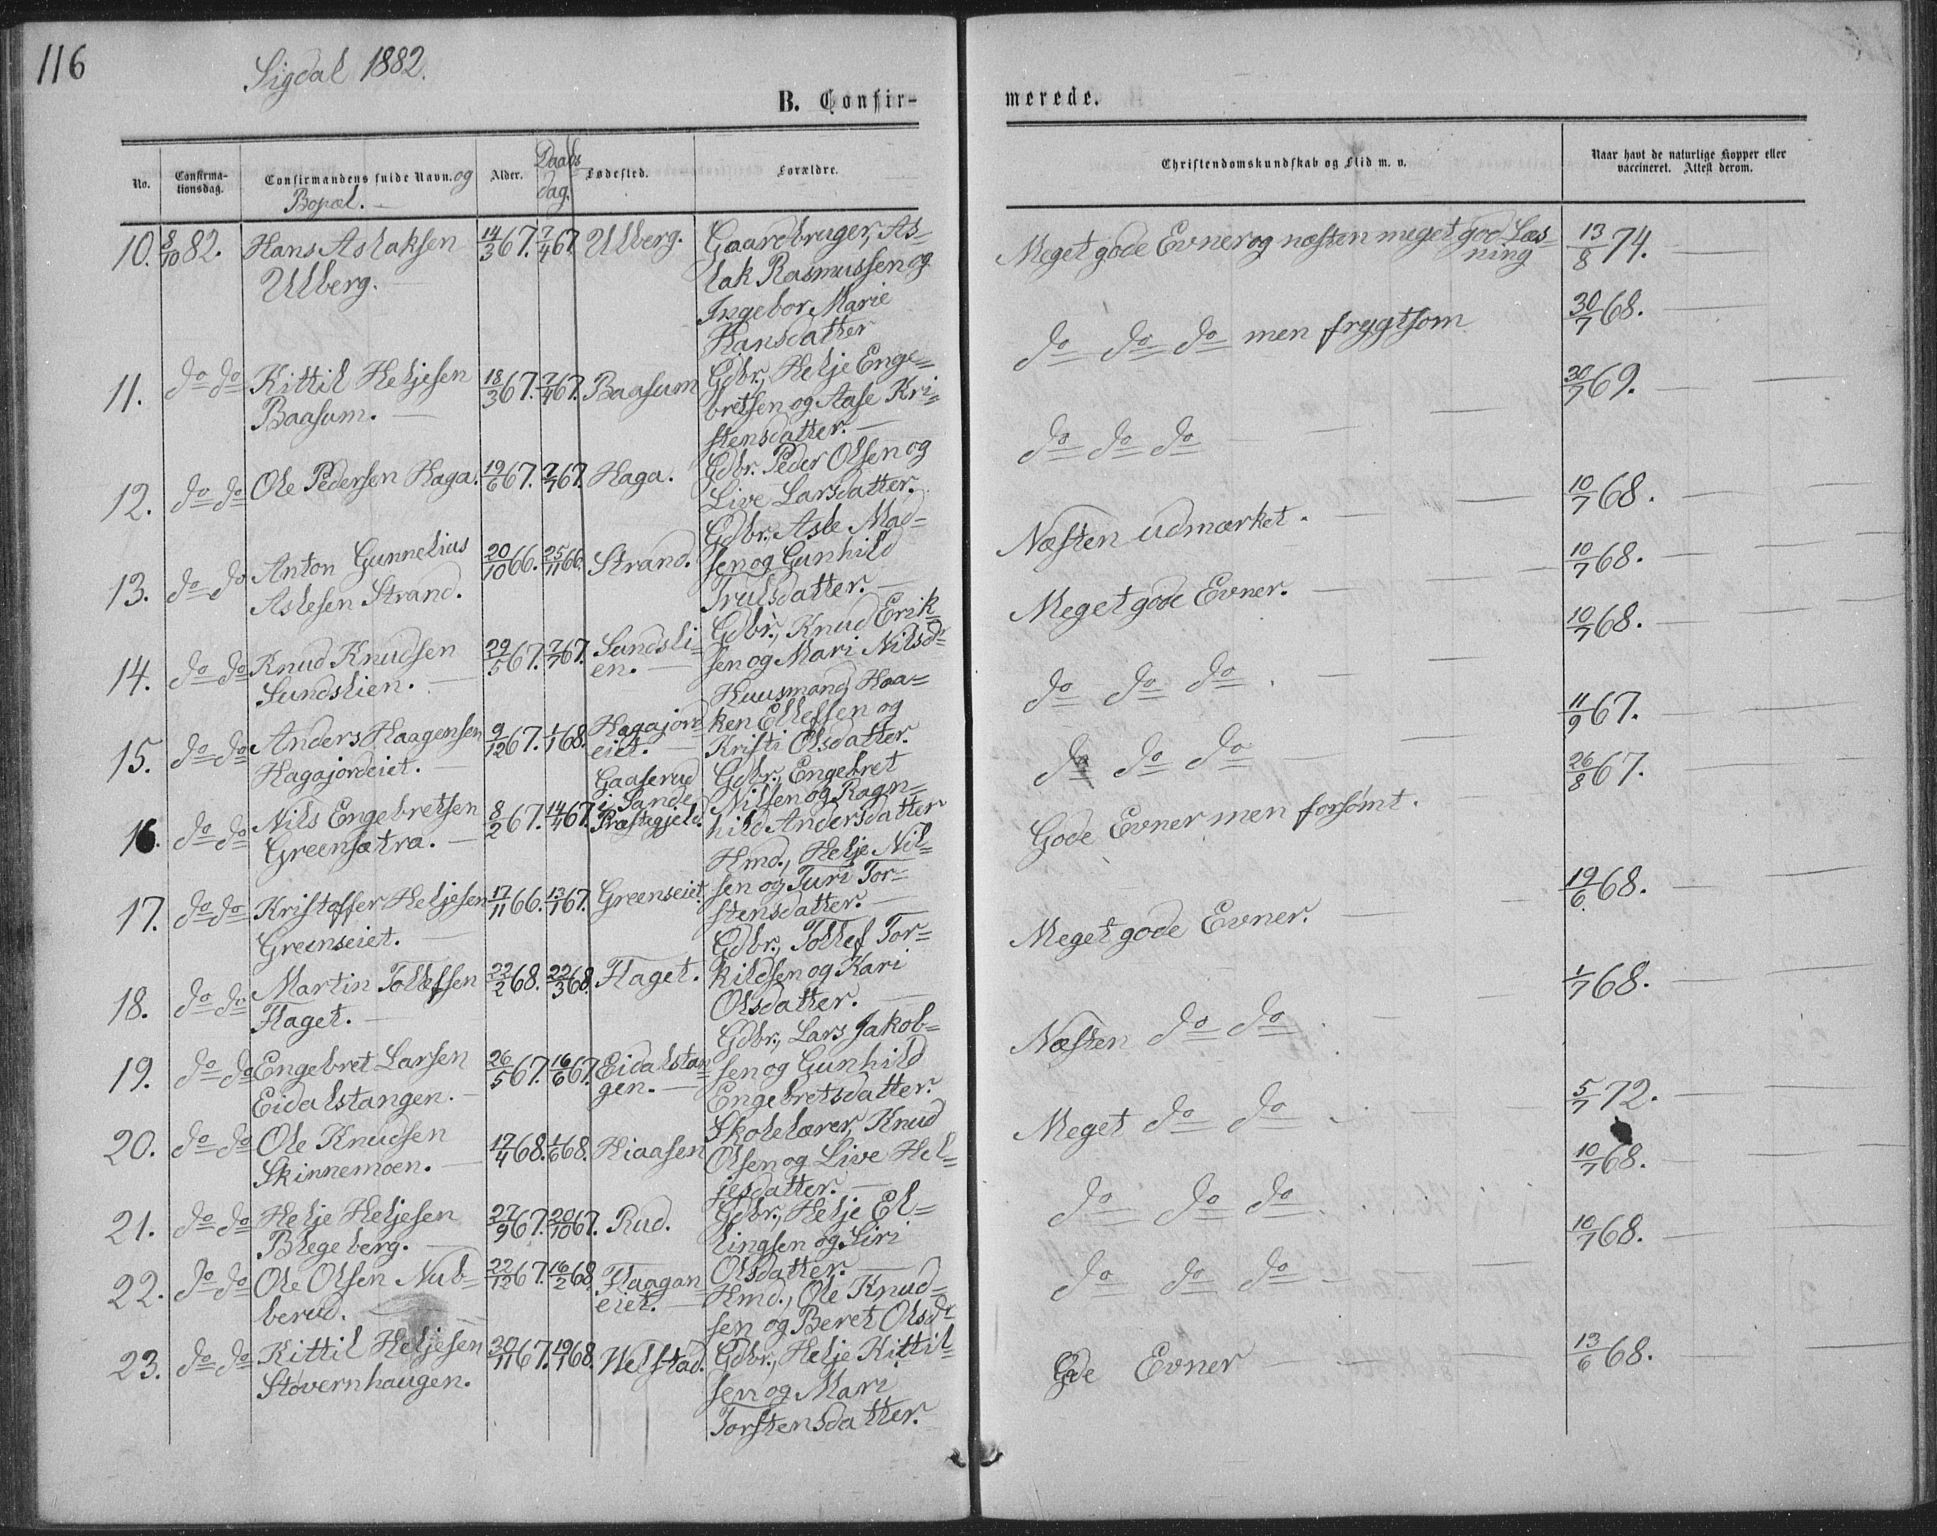 116
Sigdal 1882.
B. Confir-
merede.
No.
Confirma-
tionsdag.
Confirmandens fulde Navn. og
Bopæl.
Alder.
Daabs
dag.
Fødested.
Forældre.
Christendomskundskab og Flid m. v.
Naar havt de naturlige Kopper eller
vaccineret. Attest derom.
10. 8/10 82. Hans Aslaksen
Ulberg.
14/3 67. 7/4 67. Ulberg.
Gaardbruger, As-
lak Rasmussen og
Ingebor Marie
Hansdatter
Meget gode Evner og næsten meget god Læs-
ning
13/8 74.
11. do do Kittil Heljesen
Baasum.
18/3 67. 7/4 67. Baasum
Gdbr., Helje Enge-
bretsen og Aase Kri-
stensdatter.
do do do men frygtsom
30/7 68.
12. do do Ole Pedersen Haga. 19/6 67. 7/7 67. Haga.
Gdbr. Peder Olsen og
Live Larsdatter.
do do do
30/7 69.
13. do do Anton Gunnelius
Aslesen Strand.
20/10 66. 25/11 66. Strand.
Gdbr., Asle Mad-
sen og Gunhild
Trulsdatter.
Næsten udmærket.
10/7 68.
14. do do Knud Knudsen
Sundslien.
29/5 67. 7/7 67. Sundsli-
en.
Gdbr., Knud Erik-
sen og Mari Nilsdr
Meget gode Evner.
10/7 68.
15. do do Anders Haagensen
Hagajordeiet.
9/12 67. 1/1 68. Hagajord
eiet.
Huusmand, Haa-
ken Ellefsen og
Kristi Olsdatter.
do do do
10/7 68.
16. do do Nils Engebretsen
Greensætra.
8/2 67. 14/4 67. Gaaserud
i Sande
Præstegjeld.
Gdbr., Engebret
Nilsen og Ragn-
hild Andersdatter
do do do
11/9 67.
17. do do Kristoffer Heljesen
Greenseiet.
17/11 66. 13/1 67. Greenseiet.
Hmd., Helje Nil-
sen og Turi Tor-
stensdatter.
Gode Evner men forsømt.
26/8 67.
18. do do Martin Tollefsen
Flaget.
22/2 68. 22/3 68. Flaget.
Gdbr., Tollef Tor-
kildsen og Kari
Olsdatter.
Meget gode Evner.
19/6 68.
19. do do Engebret Larsen
Eidalstangen.
26/5 67. 16/6 67. Eidalstan
gen.
Gdbr., Lars Jakob-
sen og Gunhild
Engebretsdatter.
Næsten do do
1/7 68.
20. do do Ole Knudsen
Skinnemoen.
17/4 68. 1/6 68. Hiaasen
Skolelærer, Knud
Olsen og Live Hel-
jesdatter.
Meget do do
5/7 72.
21. do do Helje Heljesen
Blegeberg.
27/9 67. 20/10 67. Rud.
Gdbr., Helje El-
lingsen og Siri
Olsdatter.
do do do
10/7 68.
22. do do Ole Olsen Nub-
berud.
22/12 67. 16/2 68. Flaagan
eiet.
Hmd., Ole Knud-
sen og Beret Olsdr
do do do
10/7 68.
23. do do Kittil Heljesen
Støvernhaugen.
30/11 67. 19/1 68. Velstad.
Gdbr., Helje Kittil-
sen og Mari
Torstensdatter.
Gode Evner
13/6 68.